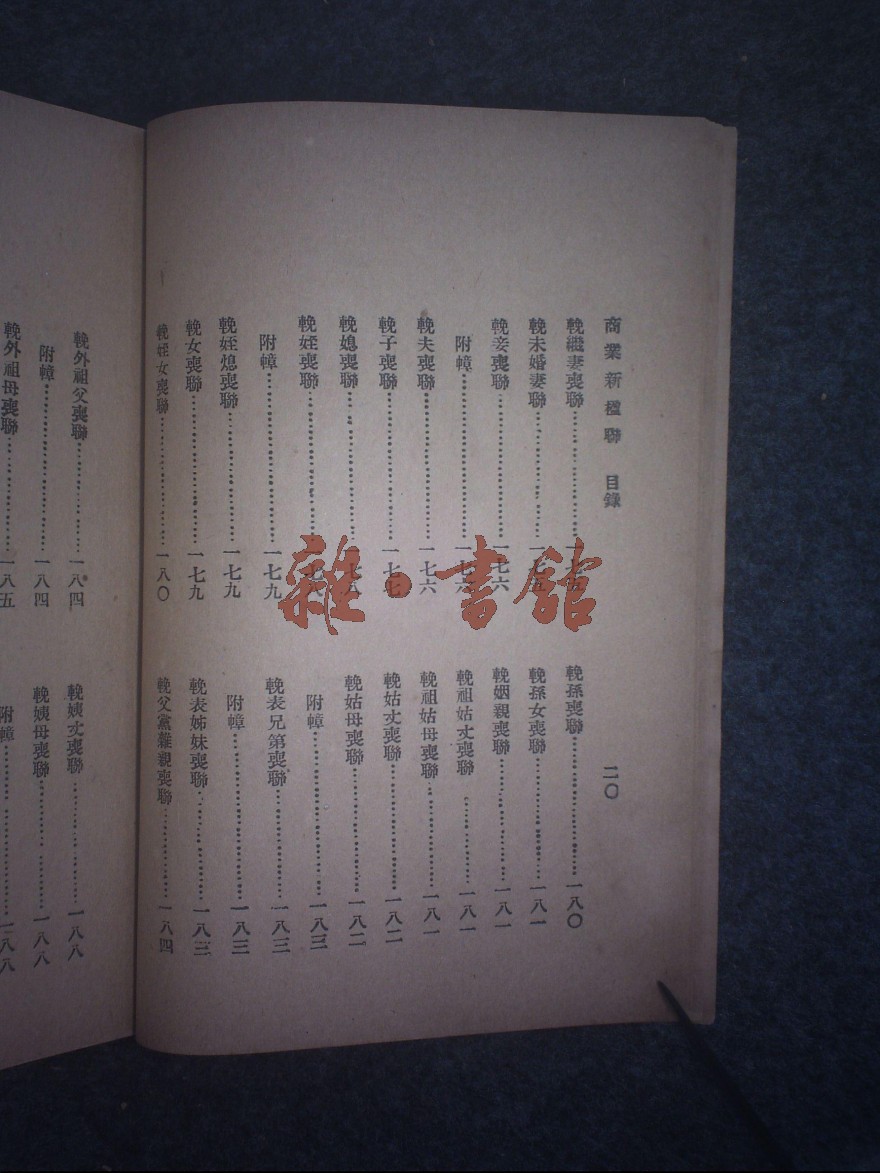 商業新楹聯 目錄
二〇
輓繼妻喪聯……一七五
輓未婚妻聯……一七五
輓妾喪聯……一七六
附幛……一七六
輓夫喪聯……一七六
輓子喪聯……一七七
輓媳喪聯……一七八
輓姪喪聯……一七八
附幛……一七九
輓姪媳喪聯……一七九
輓女喪聯……一七九
輓姪女喪聯……一八〇
輓孫喪聯……一八〇
輓孫女喪聯……一八一
輓姻親喪聯……一八一
輓祖姑丈喪聯……一八一
輓祖姑母喪聯……一八一
輓姑丈喪聯……一八二
輓姑母喪聯……一八二
附幛……一八三
輓表兄第喪聯……一八三
附幛……一八三
輓表姊妹喪聯……一八三
輓父黨雜親喪聯……一八四
輓外祖父喪聯……一八四
附幛……一八四
輓外祖母喪聯……一八五
輓姨丈喪聯……一八八
輓姨母喪聯……一八八
附幛……一八八
雜·書館